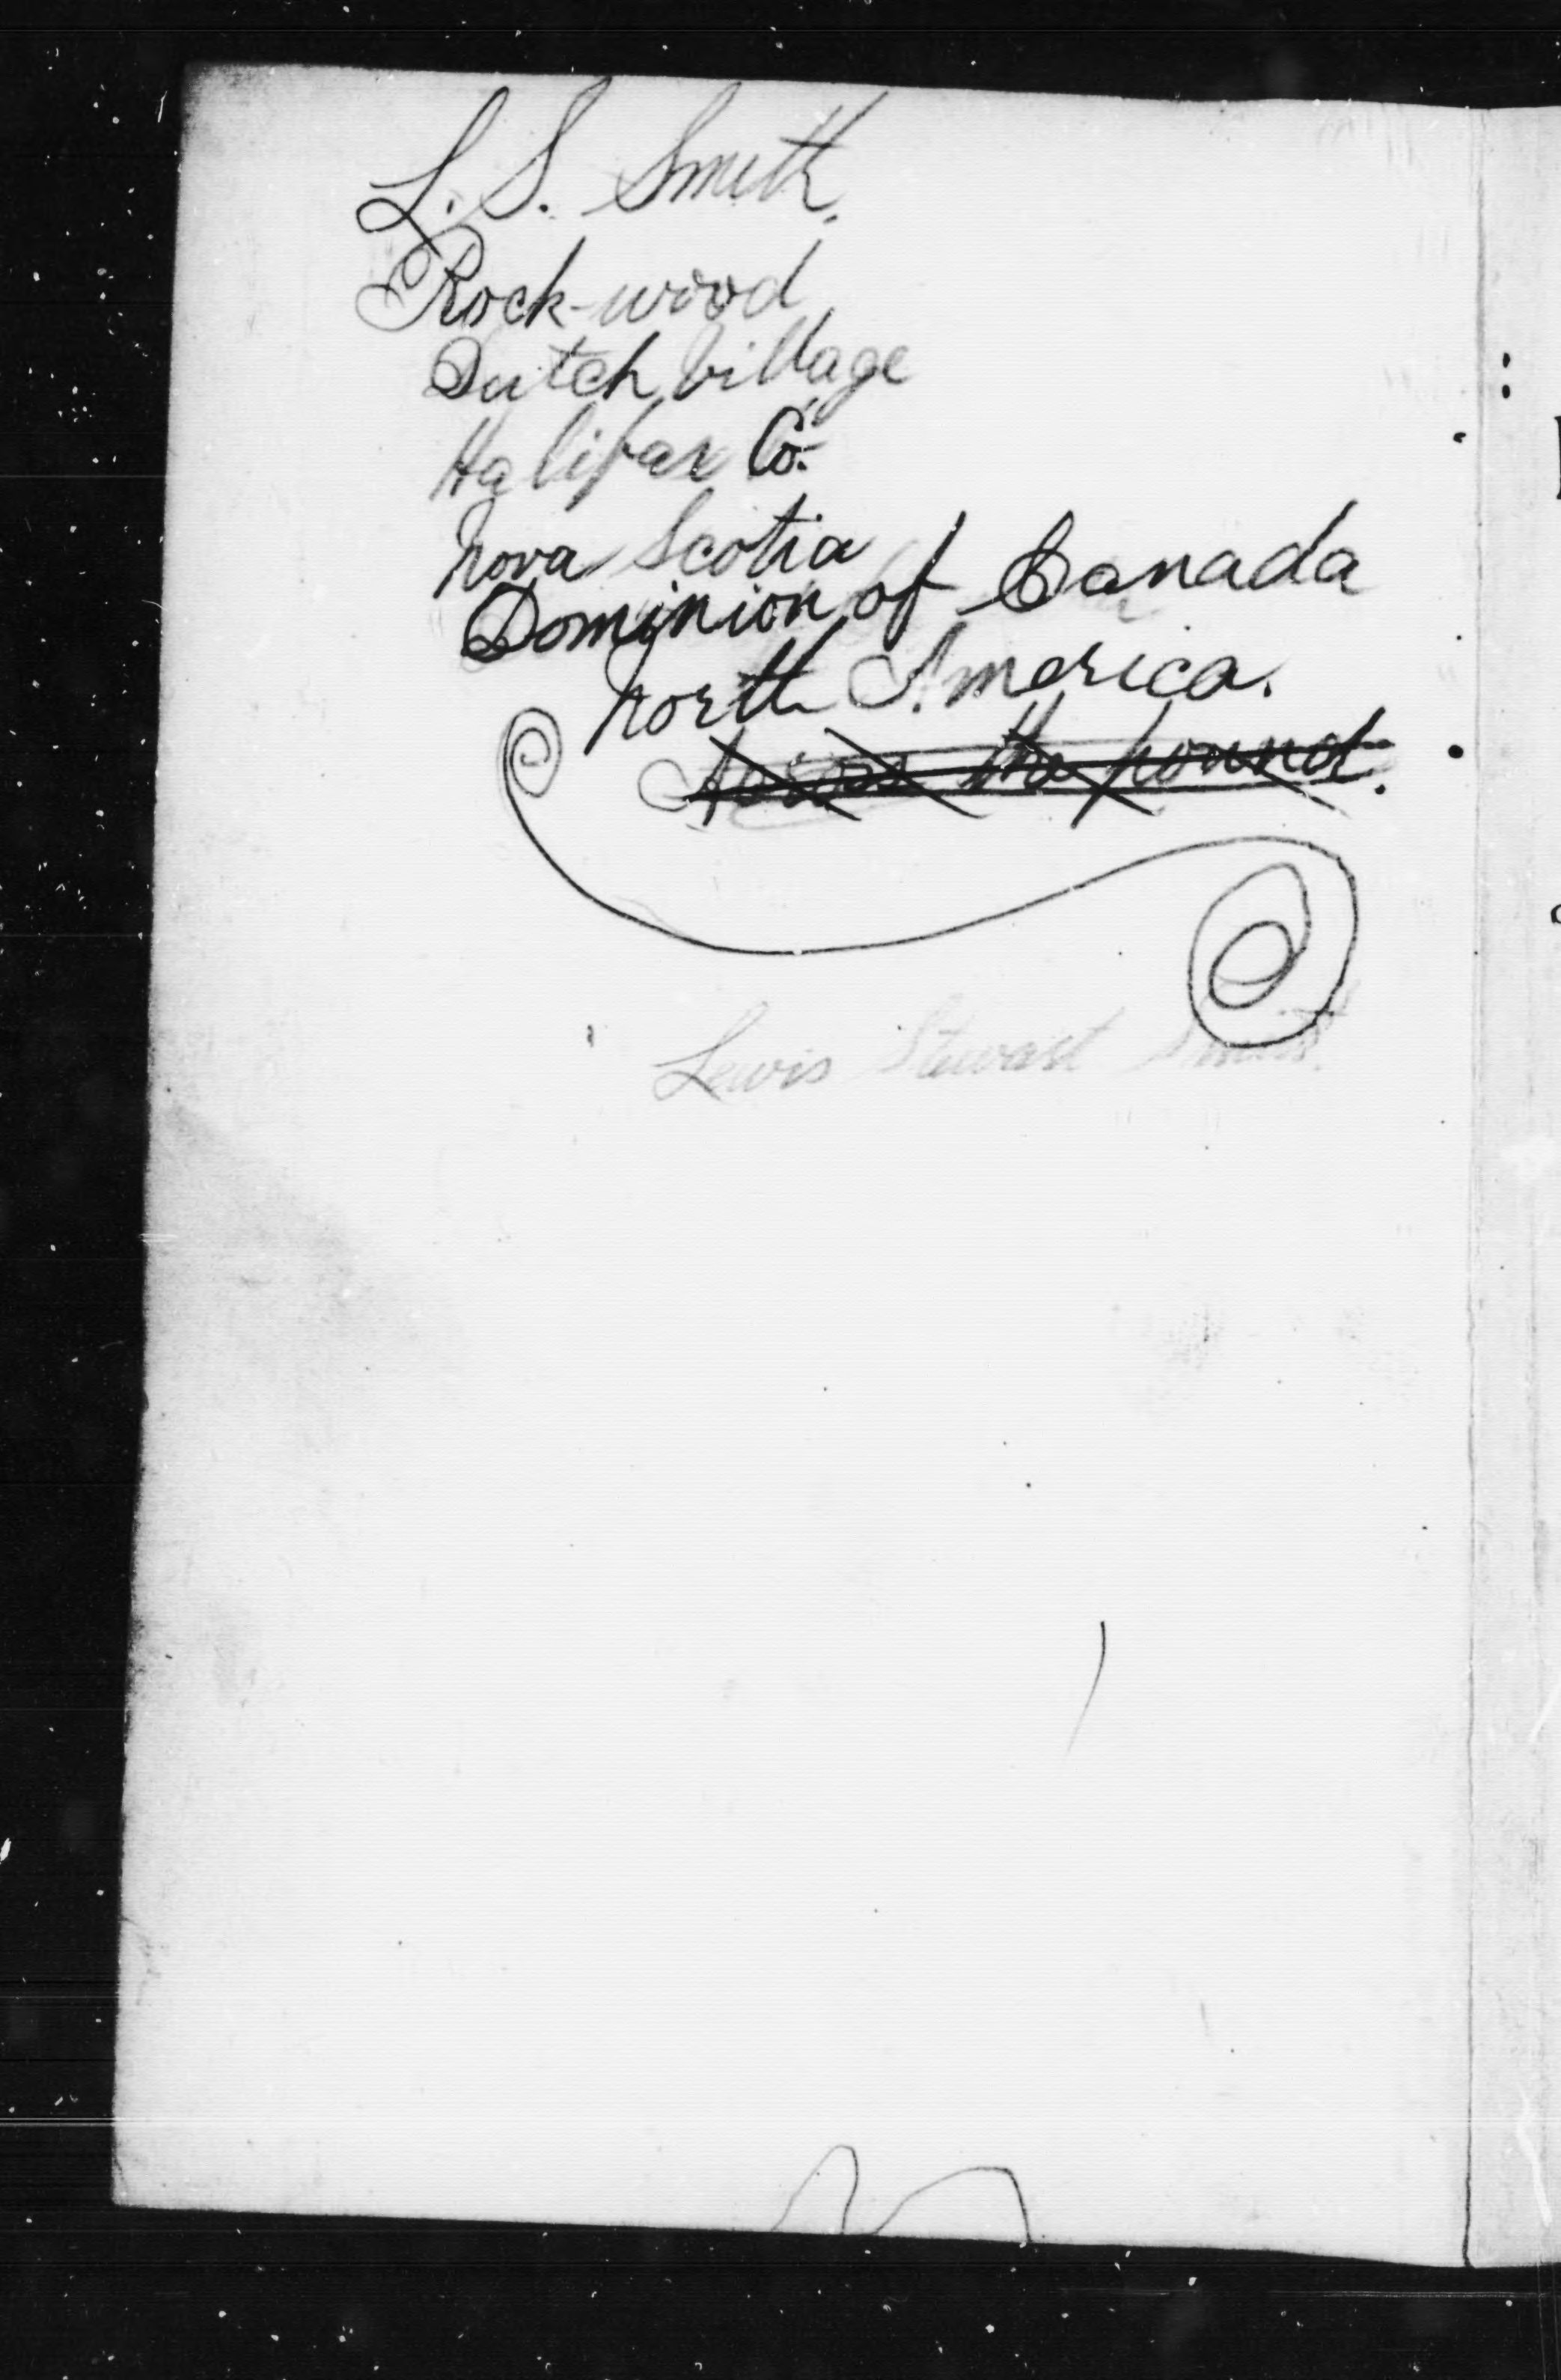 L. S. Smith.
Rock-wood
Dutch Village
Halifax Co.
Nova Scotia
Dominion of Canada
North America.
Across the pound.
Lewis Stewart Smith.